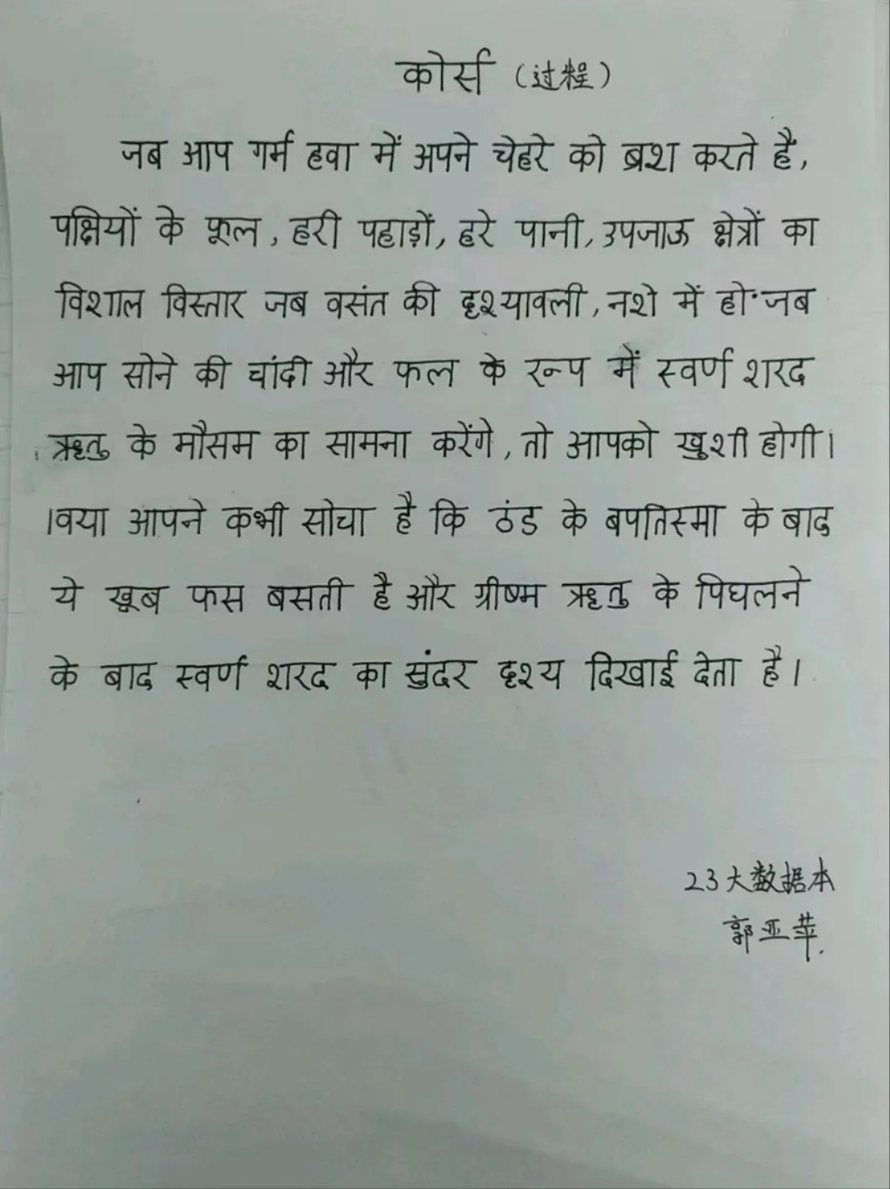 कोर्स (过程)
जब आप गर्म हवा में अपने चेहरे को ब्रश करते है,
पक्षियों के फूल, हरी पहाड़ों, हरे पानी, उपजाऊ क्षेत्रों का
विशाल विस्तार जब वसंत की दृश्यावली, नशे में हो·जब
आप सोने की चांदी और फल के रूप में स्वर्ण शरद
ऋतु के मौसम का सामना करेंगे, तो आपको खुशी होगी।
।क्या आपने कभी सोचा है कि ठंड के बपतिस्मा के बाद
ये खूब फस बसती है और ग्रीष्म ऋतु के पिघलने
के बाद स्वर्ण शरद का सुंदर दृश्य दिखाई देता है।
23大数据本
郭亚苹.